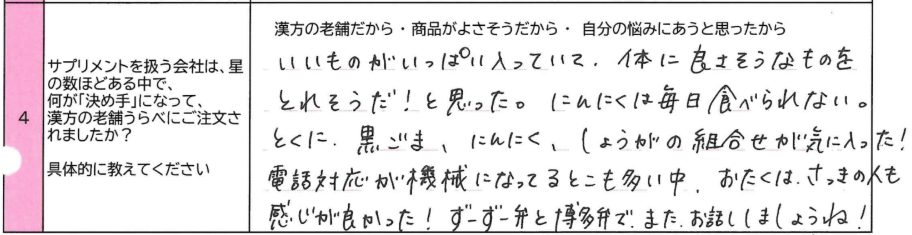 4
サプリメントを扱う会社は、星
の数ほどある中で、
何が「決め手」になって、
漢方の老舗うらべにご注文さ
れましたか？
具体的に教えてください
漢方の老舗だから・商品がよさそうだから・ 自分の悩みにあうと思ったから
いいものがいっぱい入っていて、体に良さそうなものを
とれそうだ！と思った。にんにくは毎日食べられない。
とくに、黒ごま、にんにく、しょうがの組合せが気に入った！
電話対応が機械になってるとこも多い中、おたくは、さっきの人も
感じが良かった！ずーずー弁と博多弁で、また、お話ししましょうね！